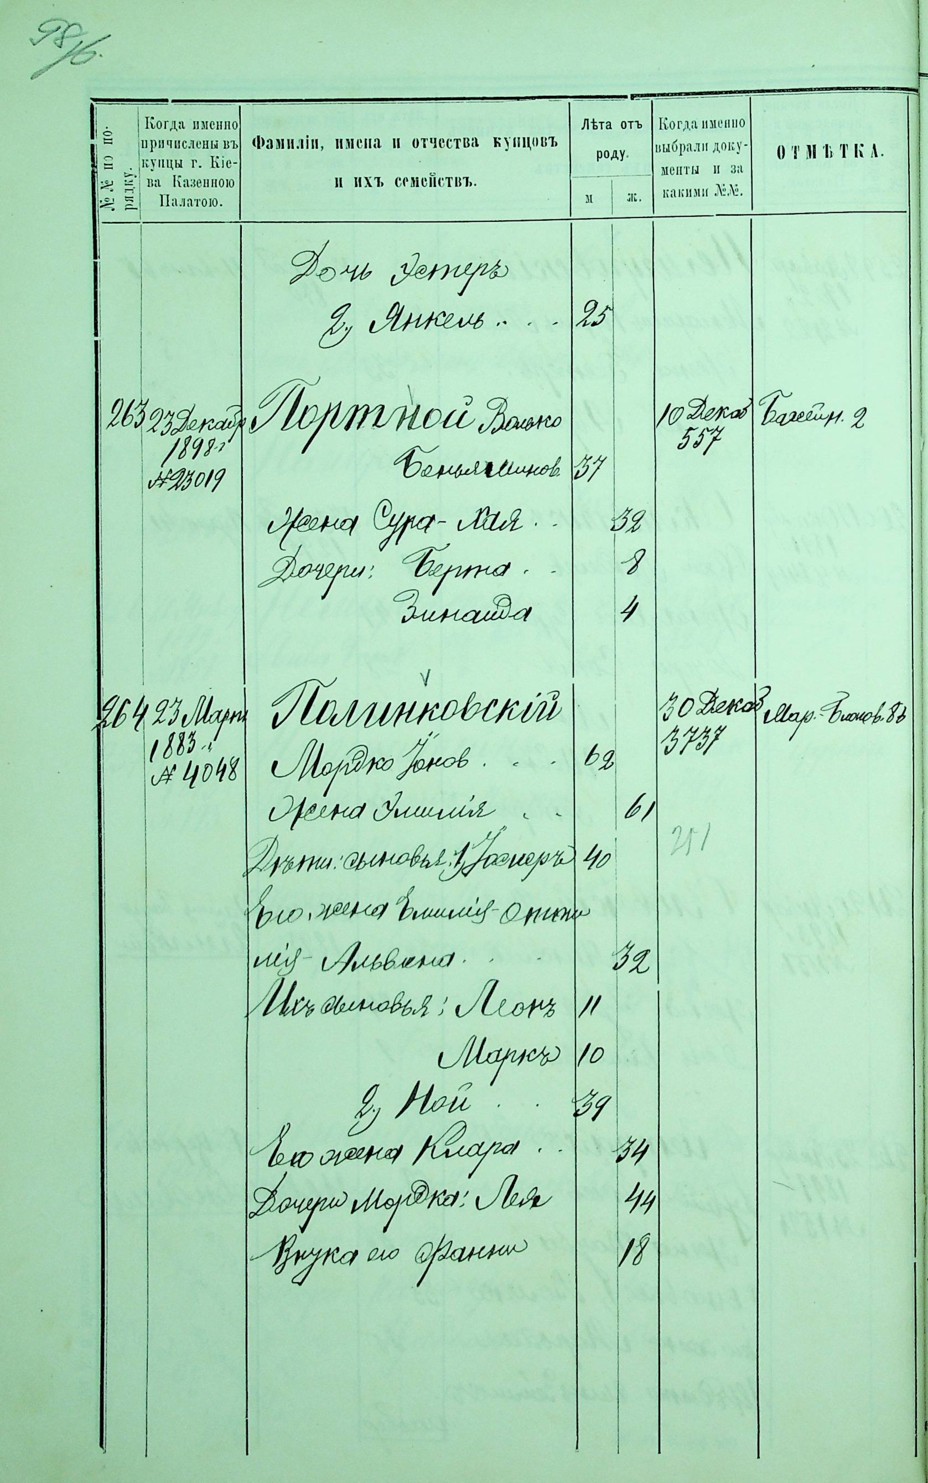 98/б.
№№ по по-
рядку.
Когда именно
причислены въ
купцы г. Кіе-
ва Казенною
Палатою.
Фамиліи, имена и отчества купцовъ
и ихъ семействъ.
Лѣта отъ
роду.
м
ж.
Когда именно
выбрали доку-
менты и за
какими №№.
ОТМѢТКА.
Дочь Эстеръ
2) Янкель . . . 25
263 23 Декабр Портной Волько 10 Декаб Басейн. 2
1898 г. 557
№ 23019 Беньяминов. 37
Жена Сура-Хая . . 32
Дочери: Берта . . 8
Зинаида 4
264 23 Марта Полинковскій 30 Декаб Мар.-Благов. 86
1883 г. 3737
№ 4048 Мордко Іонов . . . 62
Жена Эмилія . . 61
251
Дѣти: сыновья: 1) Іосперъ 40
Его жена Емилія-Отти
лія-Альвина . . . 32
Ихъ сыновья: Леонъ 11
Маркъ 10
2) Ной . . 39
Его жена Клара . . 34
Дочери Мордка: Лея 44
Внука его Фанни 18